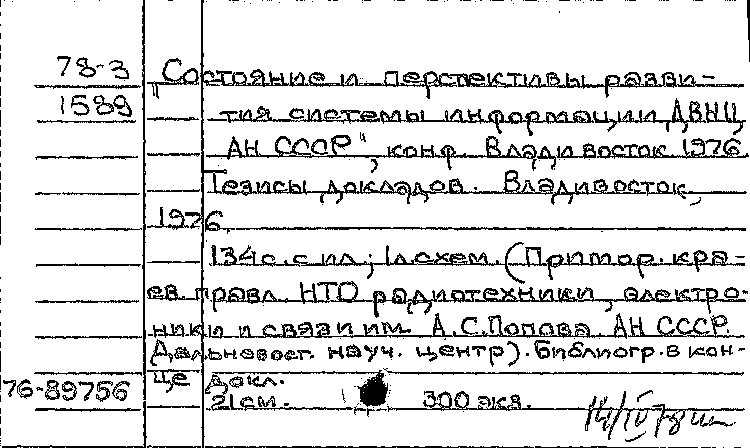 78-3 "Состояние и перспективы разви-
1589 тия системы информации ДВНЦ
АН СССР", конф. Владивосток 1976.
Тезисы докладов. Владивосток,
1976.
134 с. с ил.; 1 л. схем. (Примор. кра-
ев. правл. НТО радиотехники, электро-
ники и связи им. А.С.Попова. АН СССР.
Дальневост. науч. центр). Библиогр. в кон-
76-89756 це докл.
21 см. 300 экз.
14/IV 78